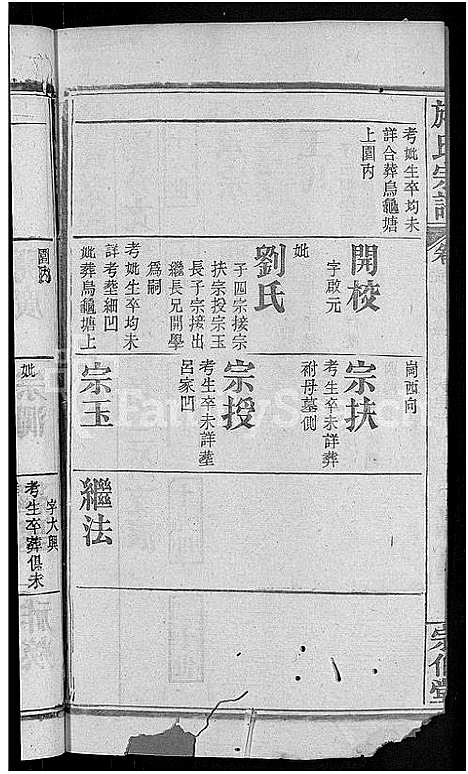 施氏宗譜
卷
宗伯堂
考妣生卒均未
詳合葬烏龜塘
上園內
開校
字啟元
妣
劉氏
子四宗接宗
扶宗授宗玉
長子宗接出
繼長兄開學
為嗣
考妣生卒均未
詳考塟細凹
妣葬烏龜塘上
園內
崗西向
宗扶
考生卒未詳葬
祔母墓側
宗授
考生卒未詳塟
呂家凹
宗玉
妣
繼法
字大興
考生卒葬俱未